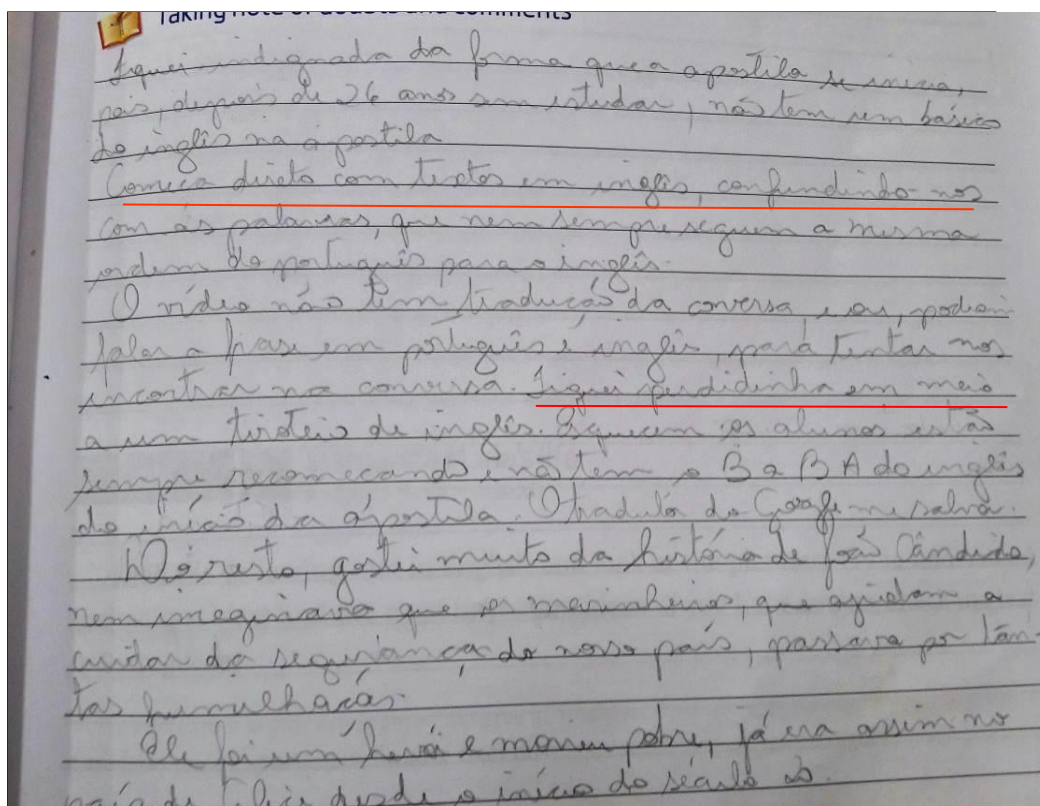 Taking note of doubts and comments
Fiquei indignada da forma que a apostila se inicia,
pois, depois de 26 anos sem estudar, não tem um básico
do inglês na apostila
Começa direto com textos em inglês, confundindo-nos
com as palavras, que nem sempre seguem a mesma
ordem do português para o inglês.
O vídeo não tem tradução da conversa, e ou, podiam
falar a frase em português e inglês, para tentar nos
encontrar na conversa. Fiquei perdidinha em meio
a um tiroteio de inglês. Esquecem os alunos estão
sempre recomecando e não tem o B a B A do inglês
do início da apostila. O tradutor do Google me salva.
De resto, gostei muito da história de João Cândido,
nem imaginava que os marinheiros, que ajudam a
cuidar da segurança do nosso país, passava por tân-
tas humilhacões.
Ele foi um herói e morreu pobre, já era assim no
país de desde o início do século